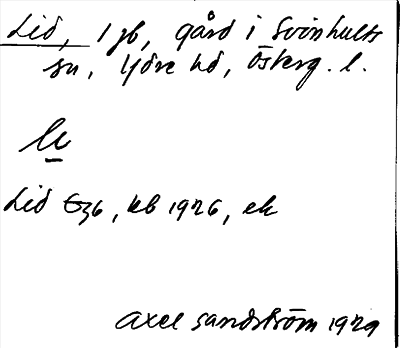 Lid, 1 gb, gård i Svinhults
sn, Ydre hd, Österg. l.
li
Lid E36, kb 1926, ek
Axel Sandström 1929